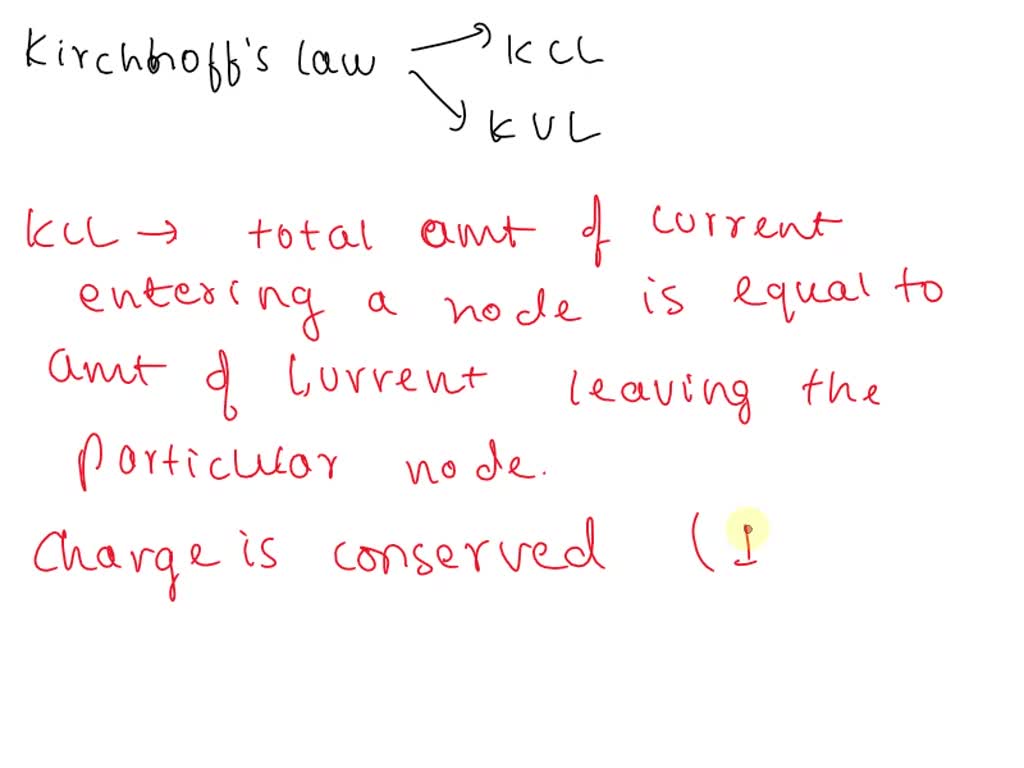 Kirchhoff's law → KCL
↘ KVL
KCL → total amt of current
entering a node is equal to
amt of current leaving the
particular node.
Charge is conserved ( I